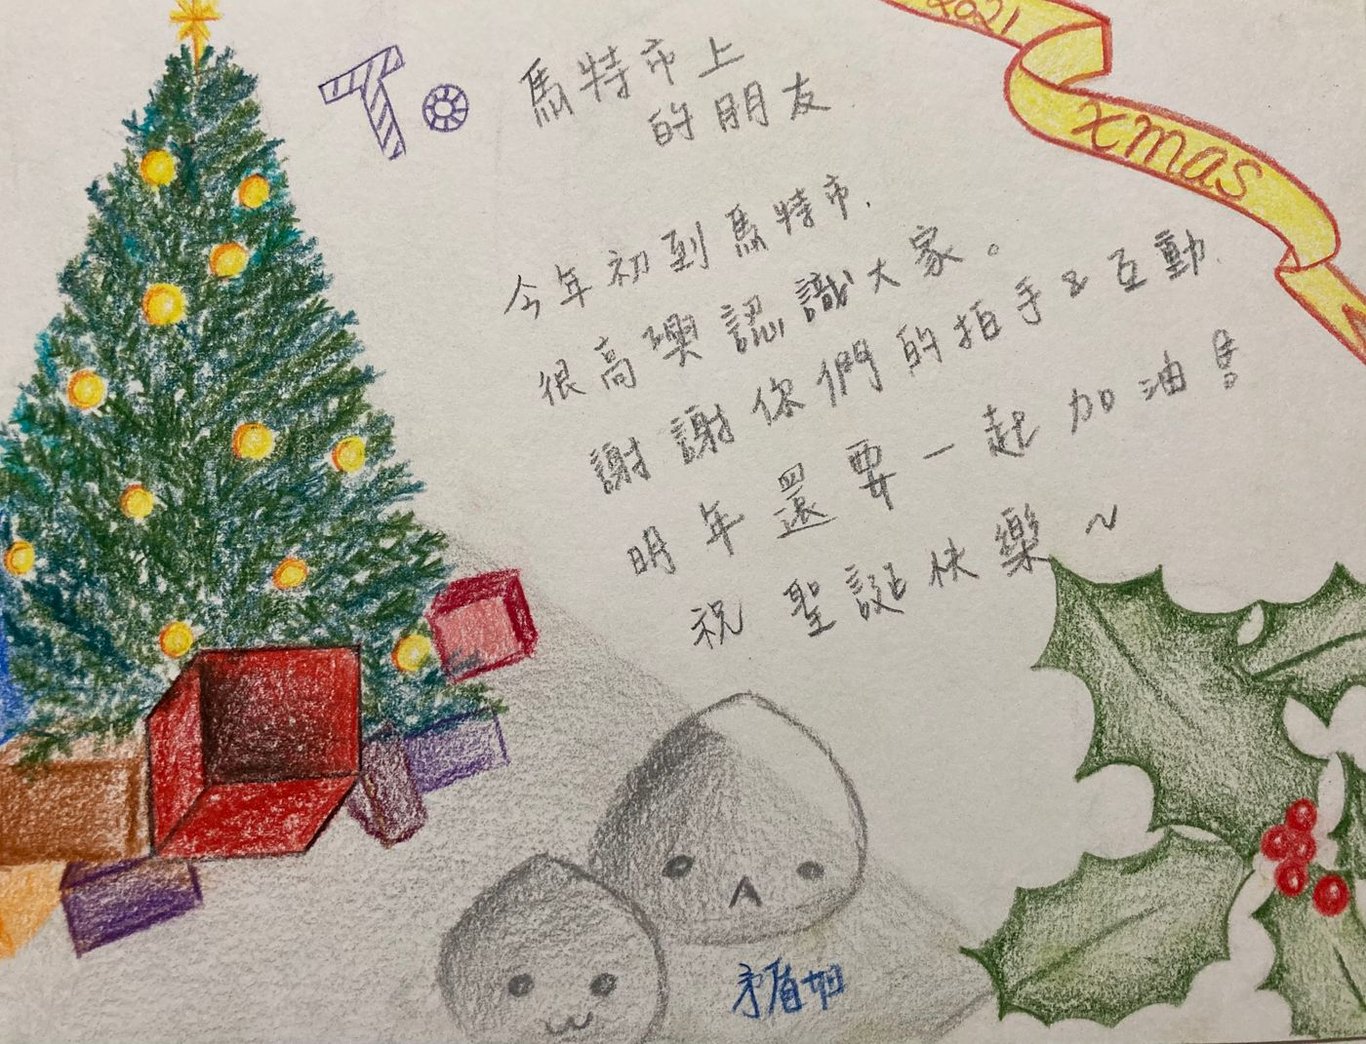 2021
xmas
To 馬特市上
的朋友
今年初到馬特市，
很高興認識大家。
謝謝你們的拍手&互動，
明年還要一起加油
祝聖誕快樂～
矛盾如